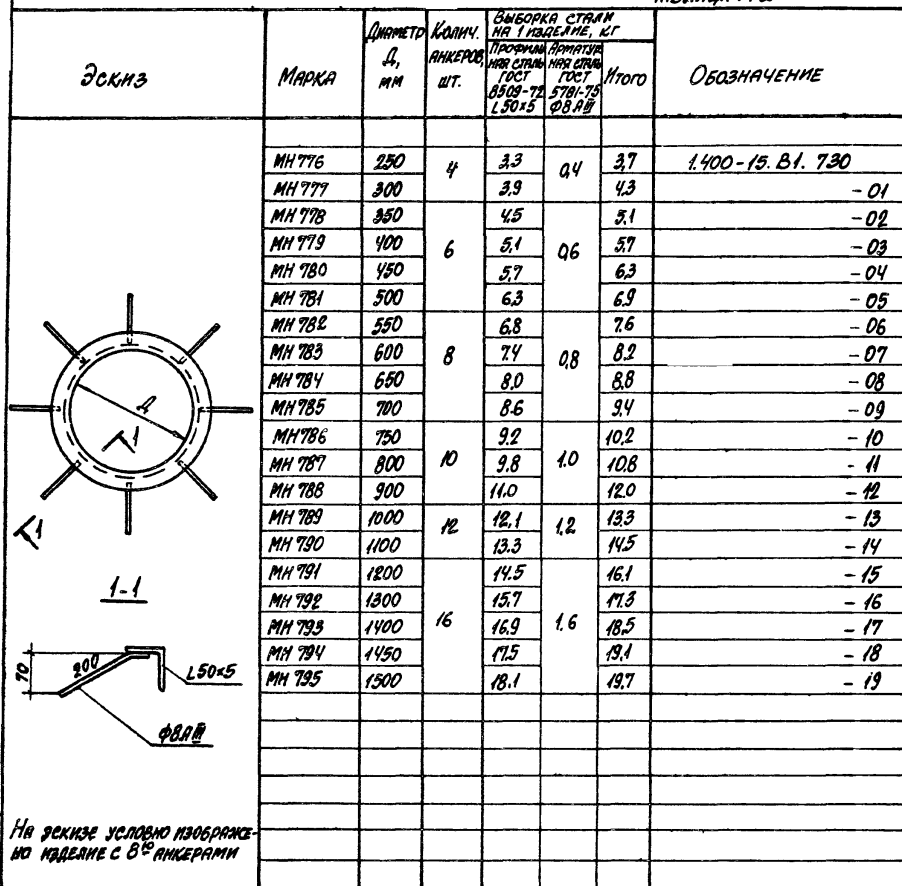 Эскиз
Марка
Диаметр Д, мм
Колич. анкеров, шт.
Выборка стали на 1 изделие, кг
Профильная сталь ГОСТ 8509-72 L50×5
Арматурная сталь ГОСТ 5781-75 Ф8АIII
Итого
Обозначение
МН 776 250 4 3,3 0,4 3,7 1.400-15.В1.730
МН 777 300 3,9 4,3 -01
МН 778 350 6 4,5 0,6 5,1 -02
МН 779 400 5,1 5,7 -03
МН 780 450 5,7 6,3 -04
МН 781 500 6,3 6,9 -05
МН 782 550 8 6,8 0,8 7,6 -06
МН 783 600 7,4 8,2 -07
МН 784 650 8,0 8,8 -08
МН 785 700 8,6 9,4 -09
МН 786 750 10 9,2 1,0 10,2 -10
МН 787 800 9,8 10,8 -11
МН 788 900 11,0 12,0 -12
МН 789 1000 12 12,1 1,2 13,3 -13
МН 790 1100 13,3 14,5 -14
МН 791 1200 16 14,5 1,6 16,1 -15
МН 792 1300 15,7 17,3 -16
МН 793 1400 16,9 18,5 -17
МН 794 1450 17,5 19,1 -18
МН 795 1500 18,1 19,7 -19
Д
1
1
1-1
70
200
L50×5
Ф8АIII
На эскизе условно изображе-
но изделие с 8ю анкерами